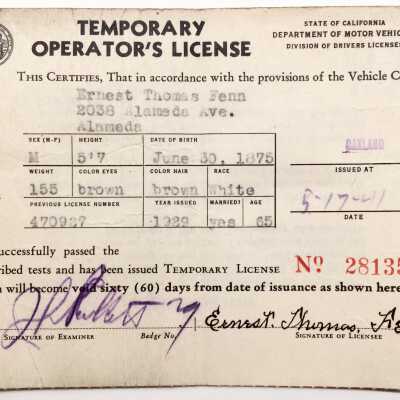 TEMPORARY
OPERATOR'S LICENSE
STATE OF CALIFORNIA
DEPARTMENT OF MOTOR VEHIC
DIVISION OF DRIVERS LICENSES
THIS CERTIFIES, That in accordance with the provisions of the Vehicle C
Ernest Thomas Fenn
2038 Alameda Ave.
Alameda
SEX (M-F) HEIGHT DATE OF BIRTH
M 5'7 June 30, 1875
WEIGHT COLOR EYES COLOR HAIR RACE
155 brown brown White
PREVIOUS LICENSE NUMBER YEAR ISSUED MARRIED? AGE
470927 1929 yes 65
OAKLAND
ISSUED AT
5-17-41
DATE
uccessfully passed the
ribed tests and has been issued TEMPORARY LICENSE
No. 28135
h will become void sixty (60) days from date of issuance as shown here
79 Ernest Thomas, Fe
SIGNATURE OF EXAMINER Badge No. SIGNATURE OF LICENSEE